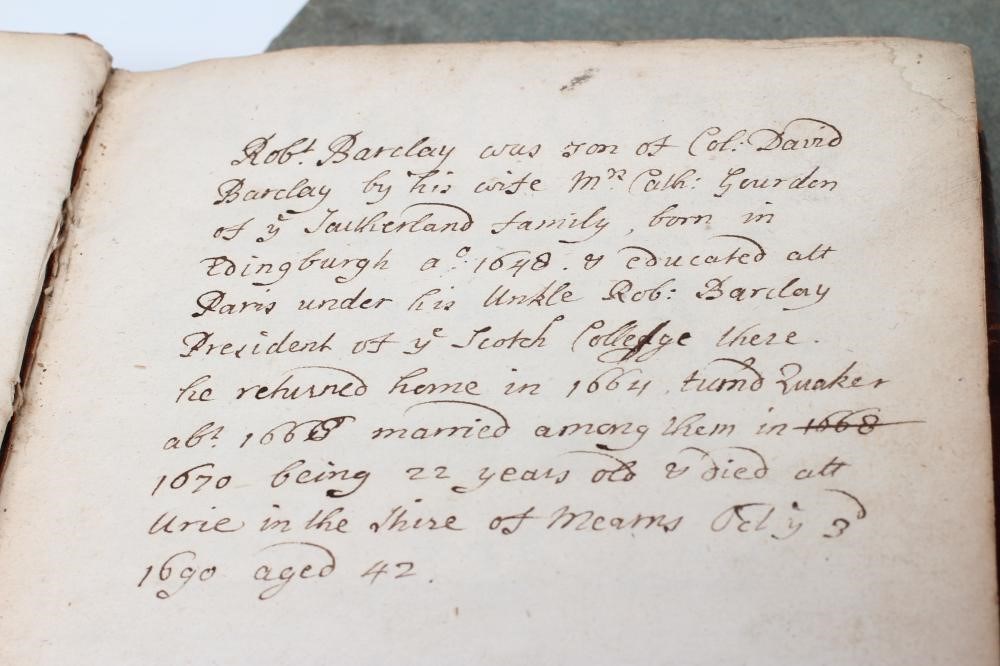 Robt. Barclay was son of Col: David
Barclay by his wife Mrs Cath: Gourdon
of ye Sutherland family, born in
Edingburgh ao. 1648. & educated att
Paris under his Unkle Rob: Barclay
President of ye Scotch Colledge there.
he returned home in 1664, turnd Quaker
abt. 1666 married among them in 1668
1670 being 22 years old & died att
Urie in the Shire of Mearns Oct ye 3d
1690 aged 42.